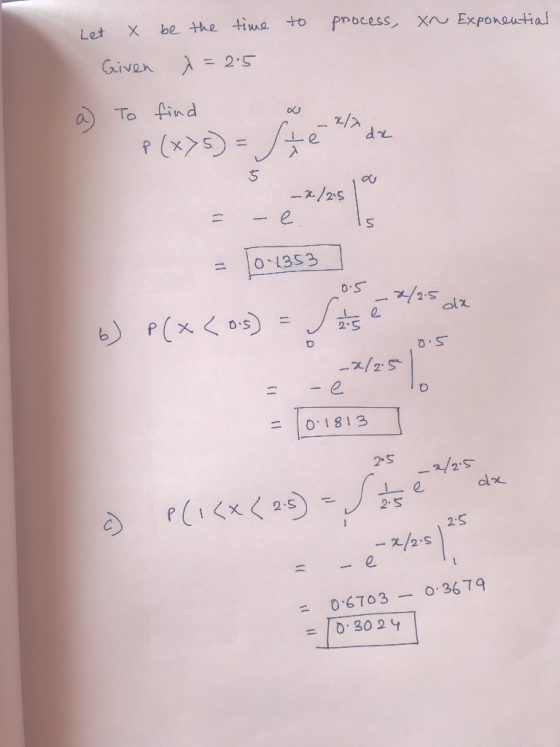 Let X be the time to process, X~ Exponential
Given λ = 2.5
a) To find
P(X>5) = ∫₅^∞ 1/λ e^{-x/λ} dx
= -e^{-x/2.5} |₅^∞
= 0.1353
b) P(X < 0.5) = ∫₀^{0.5} 1/2.5 e^{-x/2.5} dx
= -e^{-x/2.5} |₀^{0.5}
= 0.1813
c) P(1<X< 2.5) = ∫₁^{2.5} 1/2.5 e^{-x/2.5} dx
= -e^{-x/2.5} |₁^{2.5}
= 0.6703 - 0.3679
= 0.3024